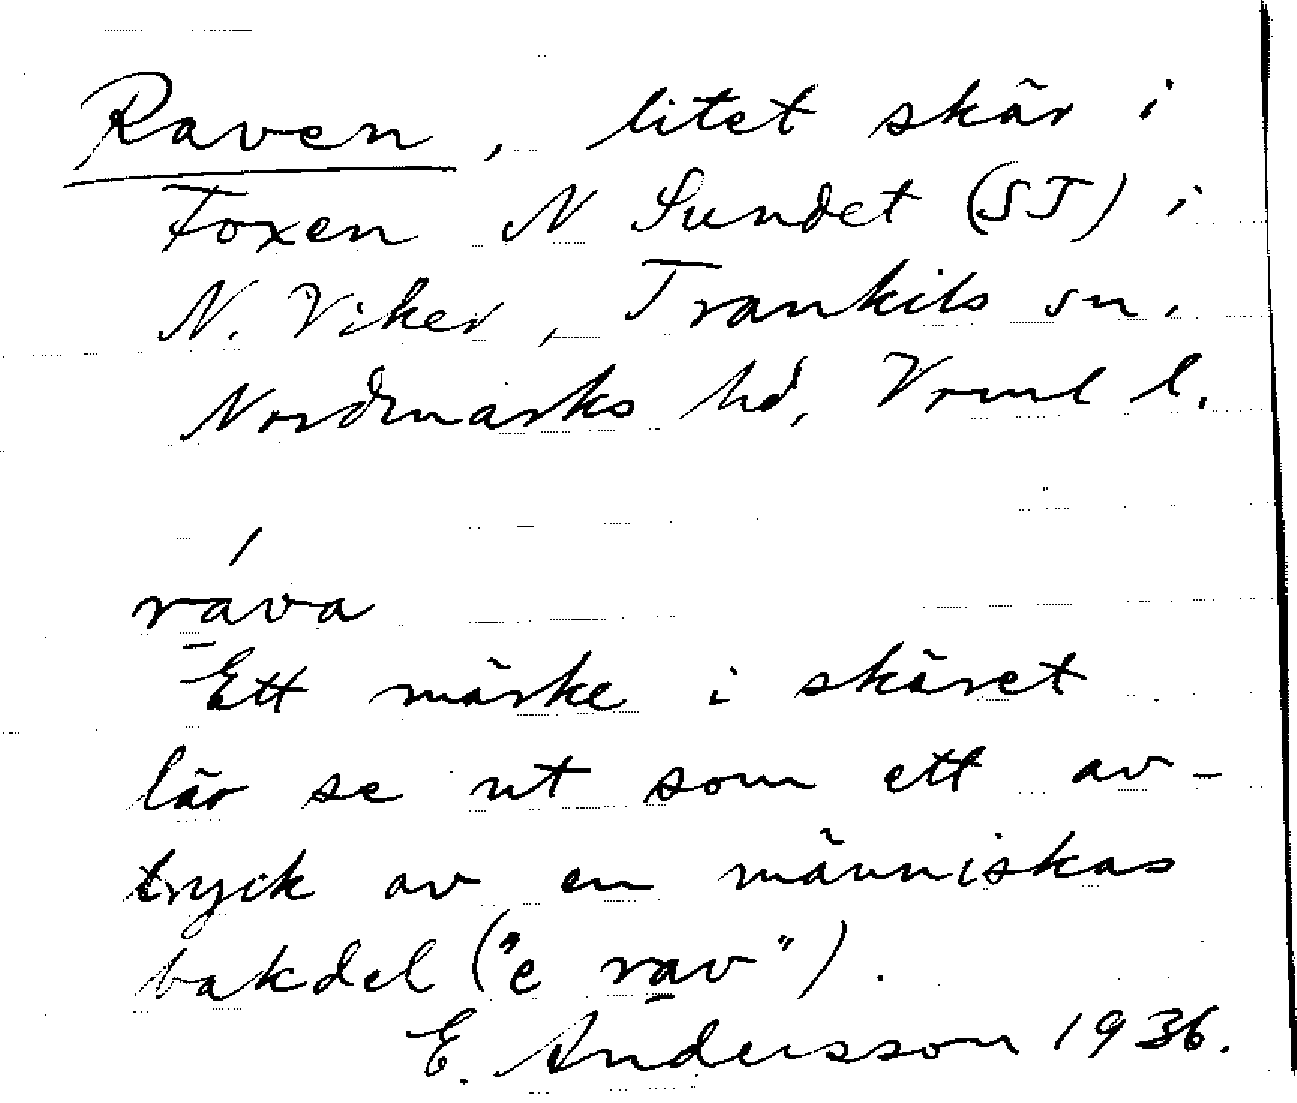 Raven, litet skär i
Foxen N Sundet (ST) i
N. Viker, Trankils sn,
Nordmarks hd, Vrml l.
ráva
Ett märke i skäret
lär se ut som ett av-
tryck av en människas
bakdel ("e rav").
E. Andersson 1936.